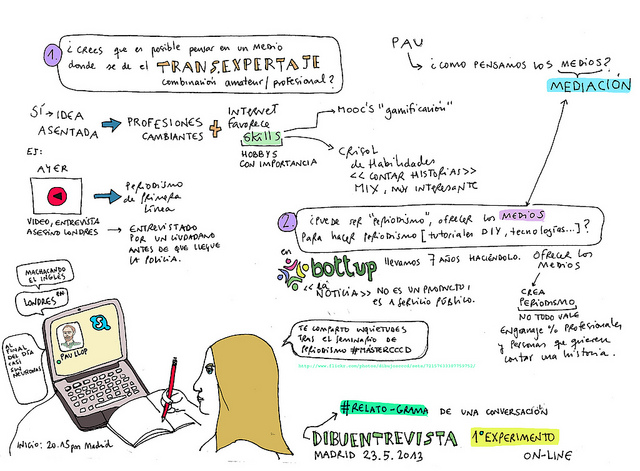 1. ¿CREES QUE ES POSIBLE PENSAR EN UN MEDIO
donde se de el TRANS.EXPERTAJE
combinación amateur/profesional?
PAU
¿CÓMO PENSAMOS LOS MEDIOS?
MEDIACIÓN
SÍ → IDEA
ASENTADA
PROFESIONES
CAMBIANTES
+
INTERNET
favorece
SKills
HOBBYS
CON IMPORTANCIA
MOOC'S "gamificación"
CRISOL
de Habilidades
<< CONTAR HISTORIAS >>
MIX, MUY INTERESANTE
EJ:
AYER
VIDEO, ENTREVISTA
ASESINO LONDRES
PERIODISMO
de Primera
Línea
ENTREVISTADO
POR UN CIUDADANO
ANTES DE QUE LLEGUE
LA POLICIA.
2. ¿PUEDE SER "periodismo", OFRECER LOS MEDIOS
Para hacer PERIODISMO [tutoriales DIY, tecnologías...]?
en
bottup
llevamos 7 AÑOS HACIÉNDOLO.
<< la
NOTICIA >> NO ES UN PRODUCTO,
ES 1 SERVICIO PÚBLICO.
OFRECER LOS
MEDIOS
CREA
PERIODISMO
NO TODO VALE
Engranaje % Profesionales
y Personas que quieren
contar una historia.
MACHACANDO
EL INGLÉS
EN
LONDRES
AL
FINAL
DEL DÍA
CASI
SIN
NEURONAS
PAU LLOP
S
TE COMPARTO INQUIETUDES
TRAS EL SEMINARIO DE
PERIODISMO #MÁSTERCCCD
INICIO: 20.15 pm Madrid
#RELATO-GRAMA DE UNA CONVERSACIÓN
DIBUENTREVISTA
1º EXPERIMENTO
MADRID 23.5.2013
ON-LINE